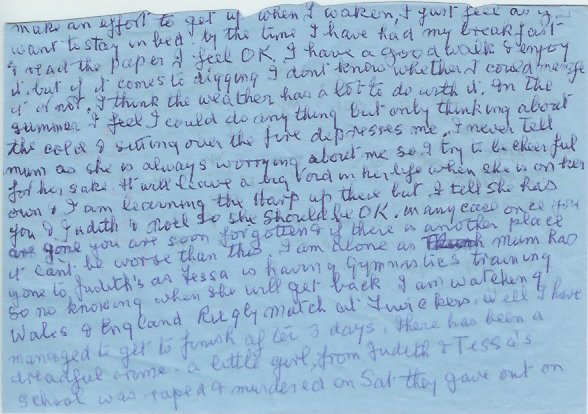 make an effort to get up when I waken, I just feel as if I
want to stay in bed. by the time I have had my breakfast
& read the paper I feel OK. I have a good walk & enjoy
it. but if it comes to digging I dont know whether I could manage
it or not. I think the weather has a lot to do with it. In the
summer I feel I could do any thing but only thinking about
the cold & sitting over the fire depresses me. I never tell
mum as she is always worrying about me so I try to be cheerful
for her sake. It will leave a big void in her life when she is on her
own & I am learning the Harp up there but I tell she has
you & Judith & Noel so she should be OK. in any case once you
are gone you are soon forgotten & if there is another place
it cant be worse than this. I am alone as mum has
gone to Judith's as Tessa is having Gymnastics training
So no knowing when she will get back I am watching
Wales & England Rugby match at Twickers. Well I have
managed to get to finish after 3 days. There has been a
dreadful crime a little girl, from Judith & Tessa's
School was raped & murdered on Sat they gave out on